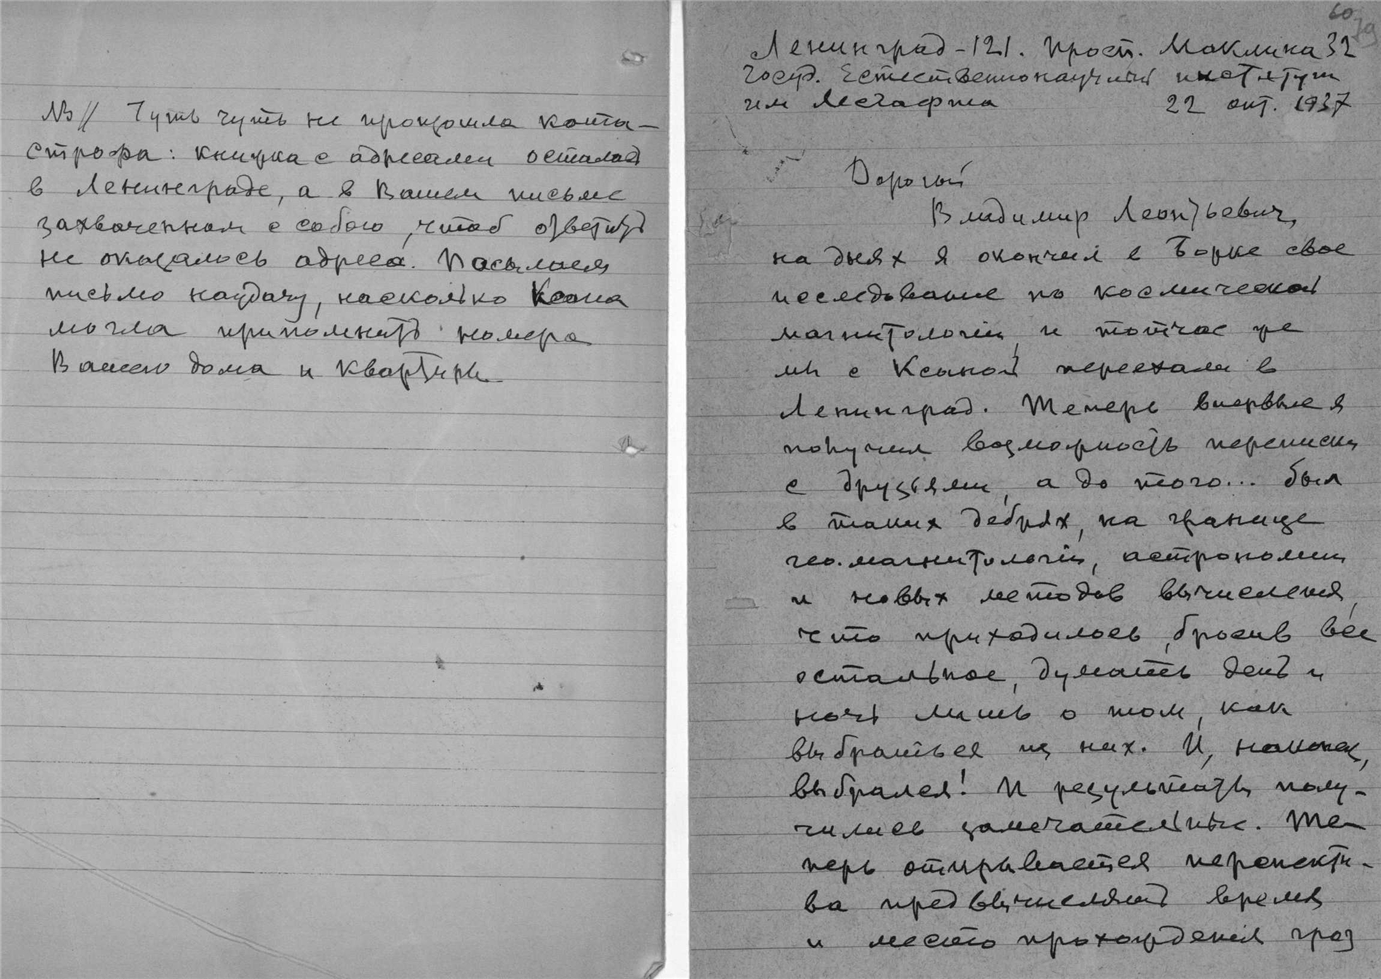 NB// Чуть чуть не произошла ката-
строфа: книжка с адресами осталась
в Ленинграде, а в Вашем письме
захваченном с собою, чтоб ответить
не оказалось адреса. Посылаем
письмо наудачу, насколько Ксана
могла припомнить номера
Вашего дома и квартиры
60
79
Ленинград-121. Просп. Маклина 32
Госуд. Естественнонаучный институт
им Лесгафта 22 окт. 1937
Дорогой
Владимир Леонтьевич,
на днях я окончил в Борке свое
исследование по космической
магнитологии, и тотчас же
мы с Ксаной переехали в
Ленинград. Теперь впервые я
получил возможность переписки
с друзьями, а до того... был
в таких дебрях, на границе
гео.магнитологии, астрономии
и новых методов вычисления,
что приходилось, бросив все
остальное, думать день и
ночь лишь о том, как
выбраться из них. И, наконец,
выбрался! И результаты полу-
чились замечательные. Те-
перь открывается перспекти-
ва предвычислять время
и место прохождения гроз